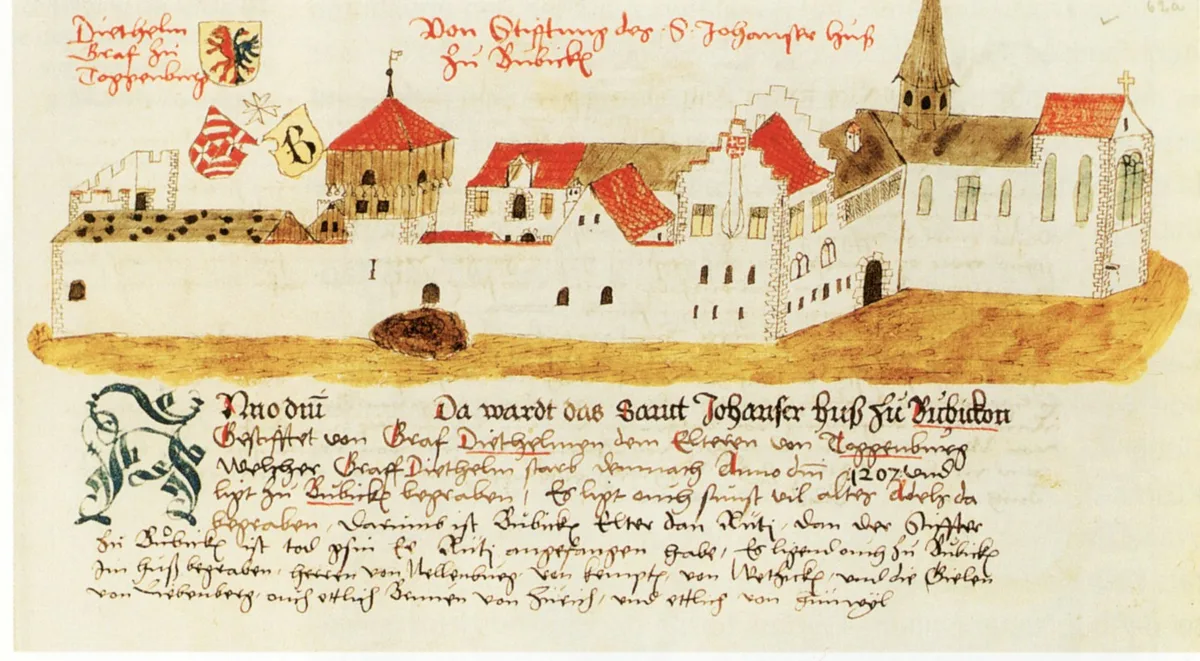 Diethelm
Graf zu
Toggenburg
Von Stifftung des S. Johanser huß
zu Bubickē
B
I
Anno dm̄ Da wardt das Sannt Johanser huß zu Bubickon
Gestifftet von Graf Diethelmen dem Elteren von Toggenburg
Welcher Graff Diethelm starb demnach Anno dm̄ 1207 und
ligt zu Bubickē begraben, Es ligt ouch sunst vil altes Adels da
begraben, Darumb ist Bubickē Elter dan Rüti, dan der Stiffter
zu Bubickē ist tod gsin Ee Rüti angefangen habe, Es ligend ouch zu Bubickē
Im huß begraben, herren von Nellenburg, von kemptē, von Wetzickē, und die Gielen
von Liebenberg, ouch ettlich von Zürich, und ettlich von